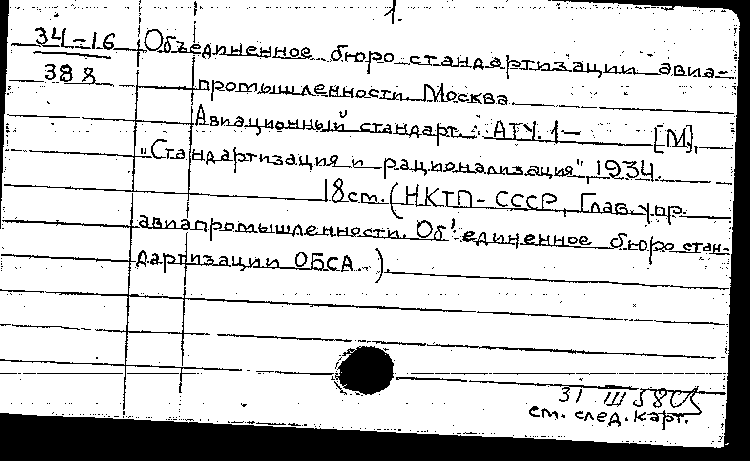 1.
34-16 Объединенное бюро стандартизации авиа-
388 промышленности. Москва.
Авиационный стандарт.: АТУ. 1— [М],
"Стандартизация и рационализация", 1934.
18 cm. (НКТП-СССР, Глав. упр.
авиапромышленности. Об'единенное бюро стан-
дартизации ОБСА.).
31 III 58
см. след. карт.